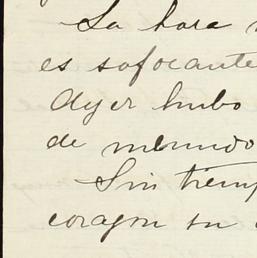 La hora
es sofocante
Ayer hubo
de menudo
Sin tiemp
corazon su